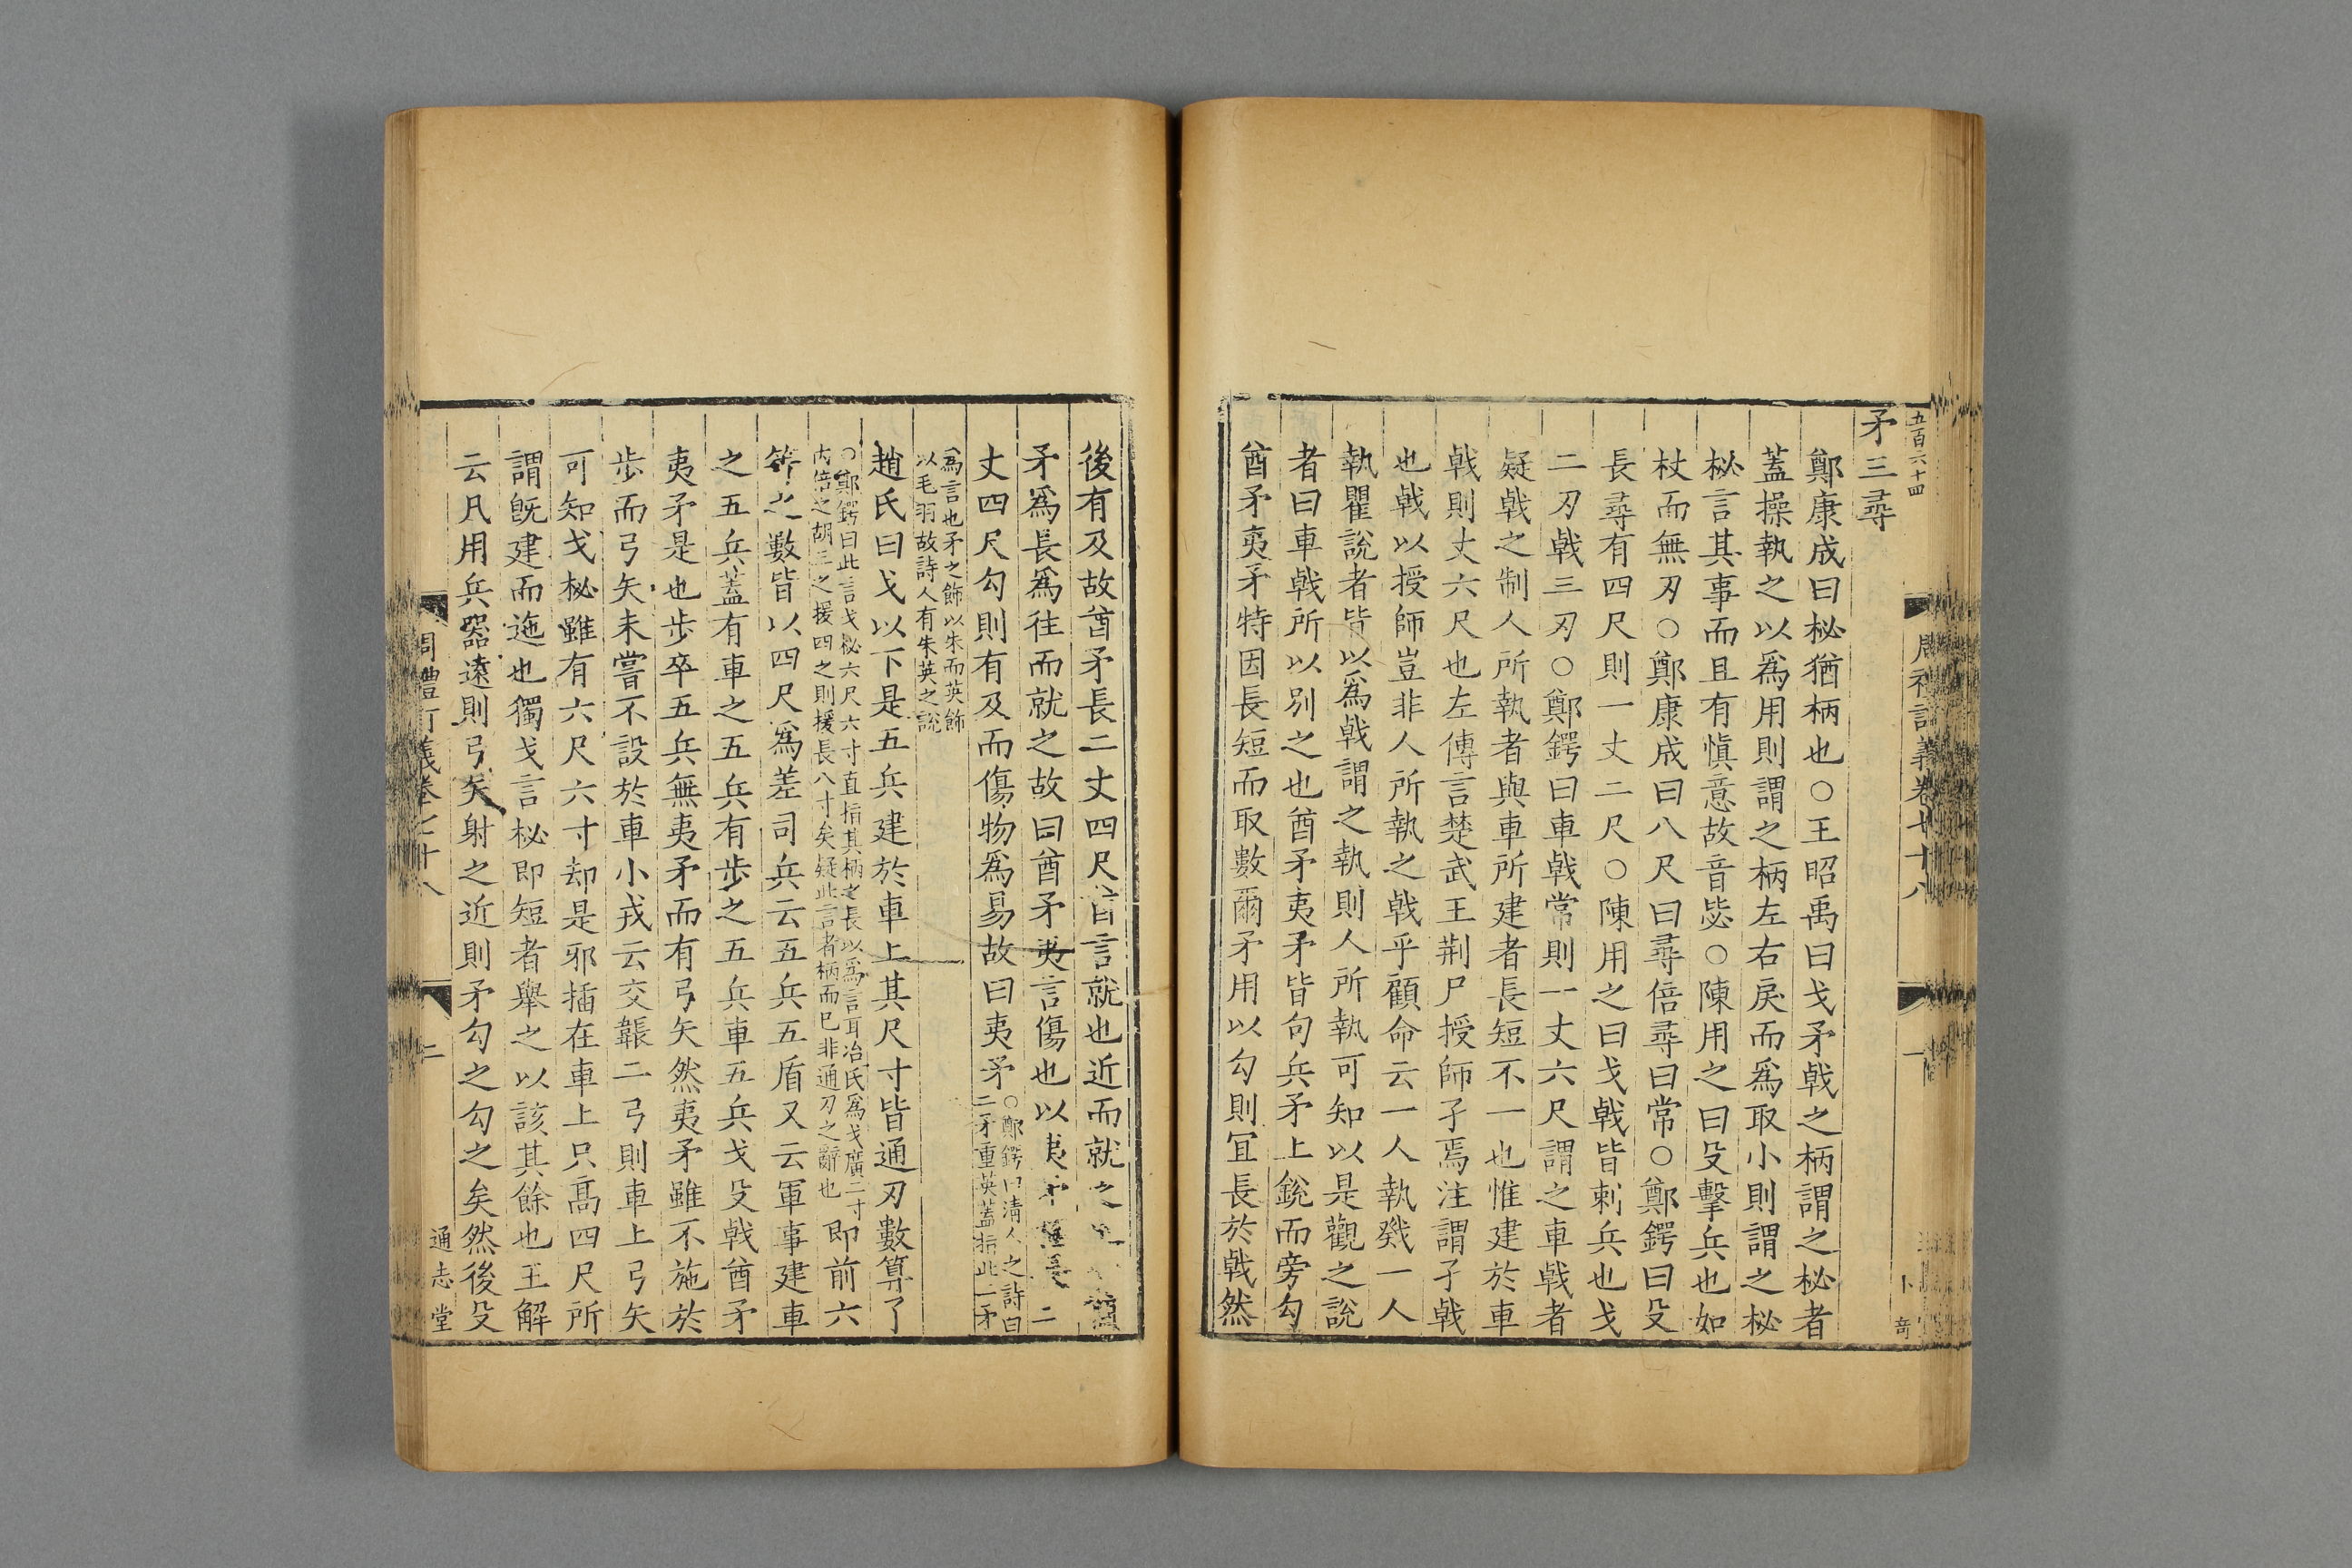 五百六十四
矛三尋
鄭康成曰柲猶柄也○王昭禹曰戈矛戟之柄謂之柲者
蓋操執之以爲用則謂之柄左右戾而爲取小則謂之柲
柲言其事而且有愼意故音毖○陳用之曰殳擊兵也如
杖而無刃○鄭康成曰八尺曰尋倍尋曰常○鄭鍔曰殳
長尋有四尺則一丈二尺○陳用之曰戈戟皆刺兵也戈
二刃戟三刃○鄭鍔曰車戟常則一丈六尺謂之車戟者
疑戟之制人所執者與車所建者長短不一也惟建於車
戟則丈六尺也左傳言楚武王荆尸授師孑焉注謂孑戟
也戟以授師豈非人所執之戟乎顧命云一人執戣一人
執瞿說者皆以爲戟謂之執則人所執可知以是觀之說
者曰車戟所以別之也酋矛夷矛皆句兵矛上銳而旁勾
酋矛夷矛特因長短而取數爾矛用以勾則宜長於戟然
周禮訂義卷七十八
一
後有及故酋矛長二丈四尺酋言就也近而就之
矛爲長爲往而就之故曰酋矛夷言傷也以夷矛 長二
丈四尺勾則有及而傷物爲易故曰夷矛○鄭鍔曰清人之詩曰
二矛重英蓋指此二矛
爲言也矛之飾以朱而英飾
以毛羽故詩人有朱英之說
趙氏曰戈以下是五兵建於車上其尺寸皆通刃數算了
○鄭鍔曰此言戈柲六尺六寸直指其柄之長以爲言耳冶氏爲戈廣二寸
內倍之胡三之援四之則援長八寸矣疑此言者柄而已非通刃之辭也
即前六
等之數皆以四尺爲差司兵云五兵五盾又云軍事建車
之五兵蓋有車之五兵有步之五兵車五兵戈殳戟酋矛
夷矛是也步卒五兵無夷矛而有弓矢然夷矛雖不施於
步而弓矢未嘗不設於車小戎云交韔二弓則車上弓矢
可知戈柲雖有六尺六寸却是邪插在車上只高四尺所
謂旣建而迤也獨戈言柲即短者舉之以該其餘也王解
云凡用兵器遠則弓矢射之近則矛勾之勾之矣然後殳
周禮訂義卷七十八
二
通志堂